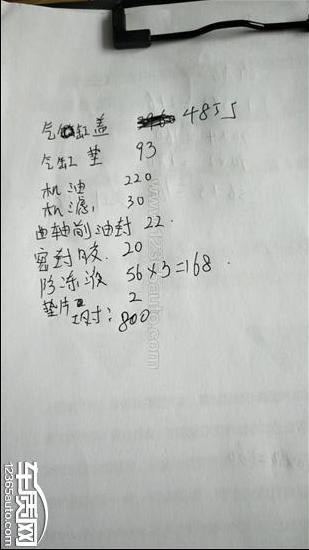 气缸盖 4855
气缸垫 93
机油 220
机滤 30
曲轴前油封 22.
密封胶. 20
防冻液 56×3=168.
垫片 2
工时: 800
www.12365auto.com
车质网
12365auto.com